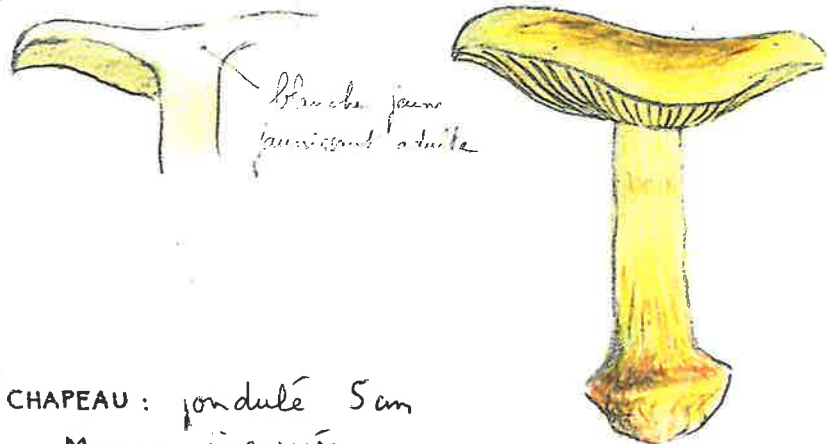 blanche jeune
jaunissant adulte
CHAPEAU : jondulé 5 cm